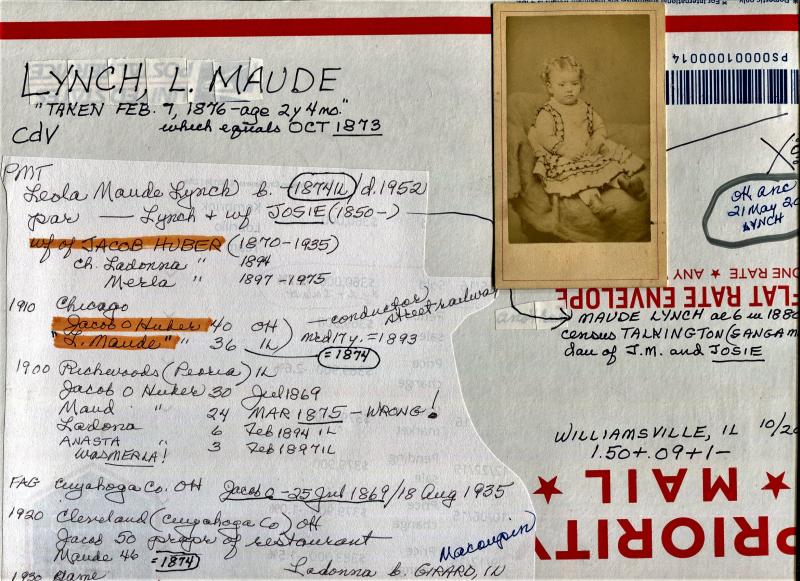 LYNCH, L. MAUDE
"TAKEN FEB. 7, 1876 - age 2y 4mo."
which equals OCT 1873
CdV
PMT
Leola Maude Lynch b. 1874 IL / d. 1952
par — Lynch + wf JOSIE (1850-)
wf of JACOB HUBER (1870-1935)
ch. Ladonna " 1894
Merla " 1897-1975
1910 Chicago
Jacob O Huber 40 OH
"L. Maude" " 36 IL
conductor street railway
md 17y. = 1893
= 1874
1900 Richwoods (Peoria) IL
Jacob O Huber 30 Jul 1869
Maud " 24 MAR 1875 - WRONG!
Ladona 6 Feb 1894 IL
ANASTA " 3 Feb 1897 IL
WAS MERLA!
FAG Cuyahoga Co. OH Jacob O - 25 Jul 1869 / 18 Aug 1935
1920 Cleveland (Cuyahoga Co) OH
Jacob 50 propr of restaurant
Maude 46 = 1874
Macoupin
Ladonna b. GIRARD, IL
1930 Same
PS00001000014
21 May
LYNCH
ONE RATE ★ ANY
FLAT RATE ENVELOPE
MAUDE LYNCH ae 6 in 1880
census TALKINGTON (SANGAM
dau of J.M. and JOSIE
WILLIAMSVILLE, IL 10/20
1.50+.09+1-
★ MAIL ★
PRIORITY